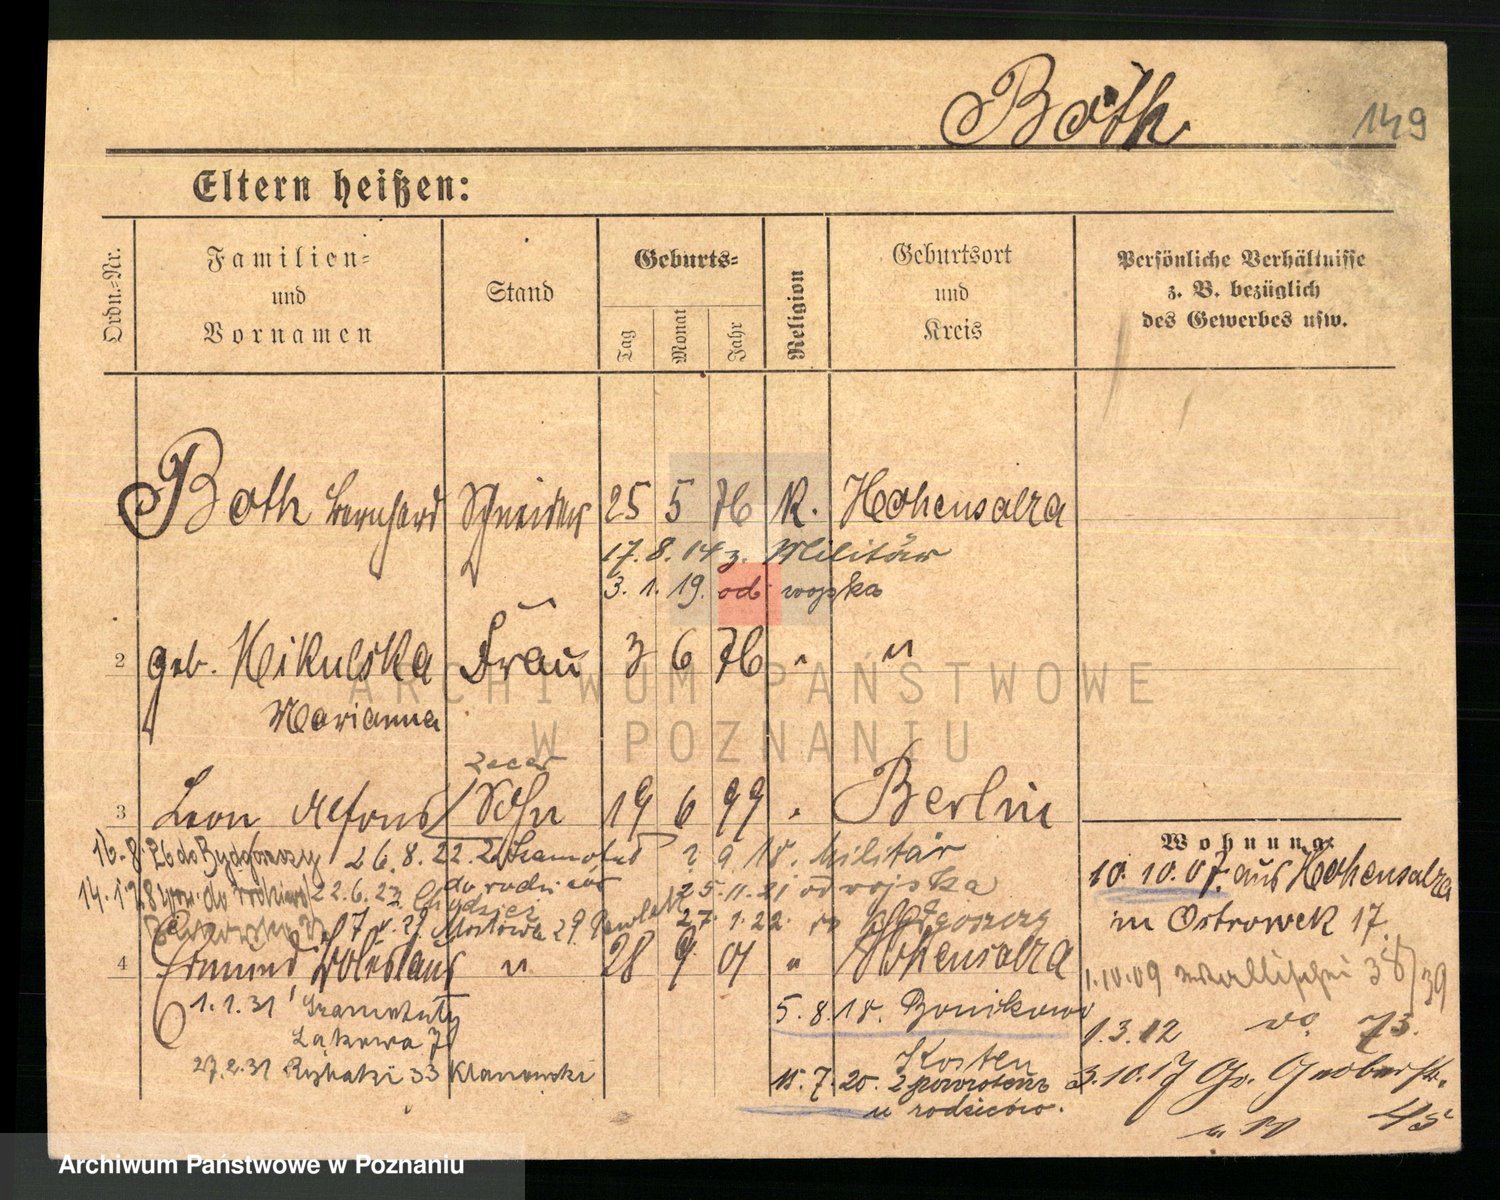 Both
149
Eltern heißen:
Ordn.-Nr.
Familien-
und
Vornamen
Stand
Geburts-
Tag
Monat
Jahr
Religion
Geburtsort
und
Kreis
Persönliche Verhältnisse
z. B. bezüglich
des Gewerbes usw.
Both Bernhard Schneider 25 5 76 K. Hohensalza
17. 8. 14 z. Militär
3. 1. 19. od wojska
2 geb. Mikulska Frau 3 6 76 " "
Marianna
ARCHIWUM PAŃSTWOWE
W POZNANIU
zecer
3 Leon Alfons Sohn 19 6 99 " Berlin
Wohnung:
16. 8 26 do Bydgoszczy 26. 8. 22. z Szamotuł ? 9 18. Militär
10. 10. 07. aus Hohensalza
do rodziców 25. 11. 21 od wojska
in Ostrowek 17.
27. 1. 22. do Bydgoszczy
4 Edmund Boleslaus " 28 9 01 " Hohensalza
1. 10. 09 Wallischei 38/39
1. 1. 31 Szamotuły
5. 8. 18. Bonikowo
Łąkowa 7
1. 3. 12 do. 73.
27. 2. 31 Rybaki 33
Kosten
15. 7. 20. z powrotem
u rodziców.
3. 10. 17 Gr. Gerberstr.
45
Archiwum Państwowe w Poznaniu